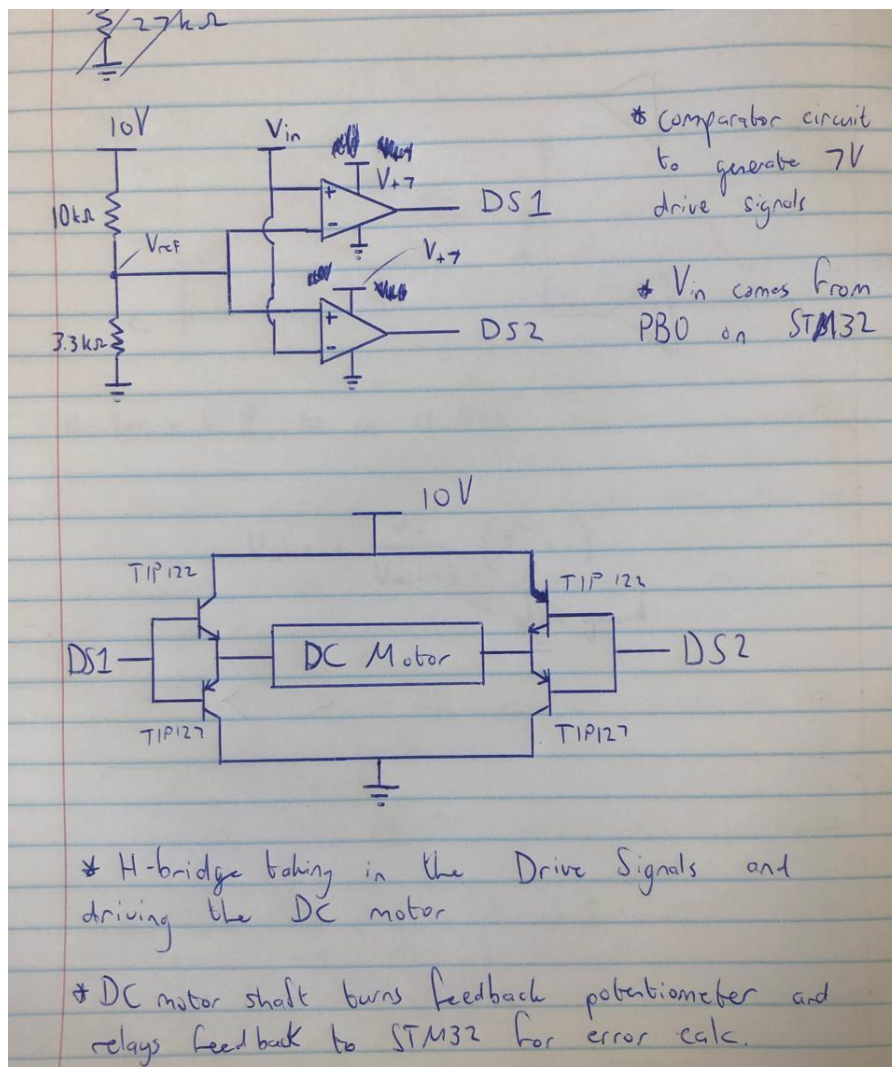 27kΩ
10V
Vin
V+7
10kΩ
+
-
DS1
Vref
V+7
+
-
DS2
3.3kΩ
* Comparator circuit
to generate 7V
drive signals
* Vin comes from
PB0 on STM32
10V
TIP122
TIP122
DS1
DC Motor
DS2
TIP127
TIP127
* H-bridge taking in the Drive Signals and
driving the DC motor
* DC motor shaft turns feedback potentiometer and
relays feedback to STM32 for error calc.